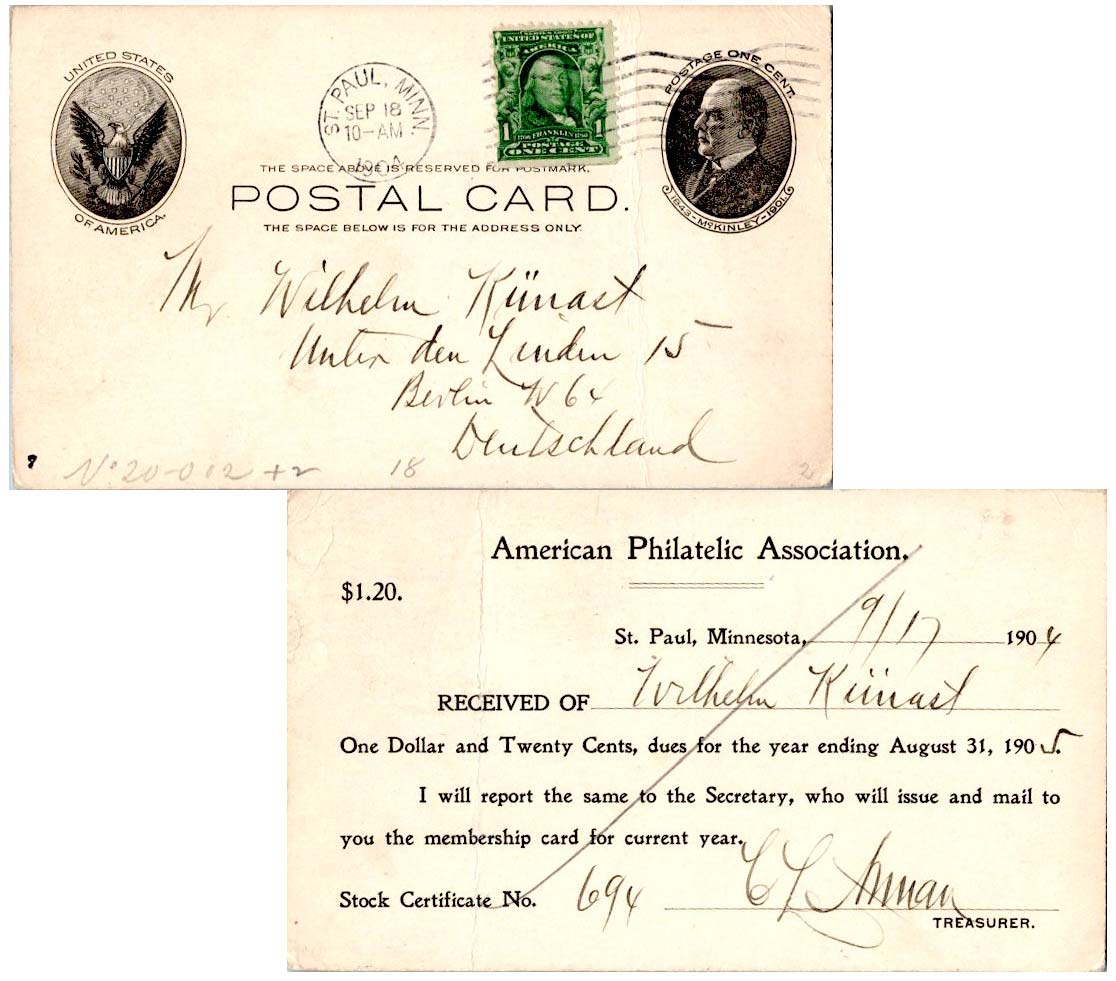 UNITED STATES
OF AMERICA.
ST. PAUL, MINN.
SEP 18
10-AM
1904
SERIES 1902
UNITED STATES OF
AMERICA
1 1706 FRANKLIN 1790 1
POSTAGE
ONE CENT
POSTAGE ONE CENT.
1843-McKINLEY-1901.
THE SPACE ABOVE IS RESERVED FOR POSTMARK.
POSTAL CARD.
THE SPACE BELOW IS FOR THE ADDRESS ONLY.
Mr. Wilhelm Künast
Unter den Linden 15
Berlin W 64
Deutschland
No 20-012 +2 18
American Philatelic Association.
$1.20.
St. Paul, Minnesota, 9/17 1904
RECEIVED OF Wilhelm Künast
One Dollar and Twenty Cents, dues for the year ending August 31, 1905.
I will report the same to the Secretary, who will issue and mail to
you the membership card for current year.
Stock Certificate No. 694
TREASURER.